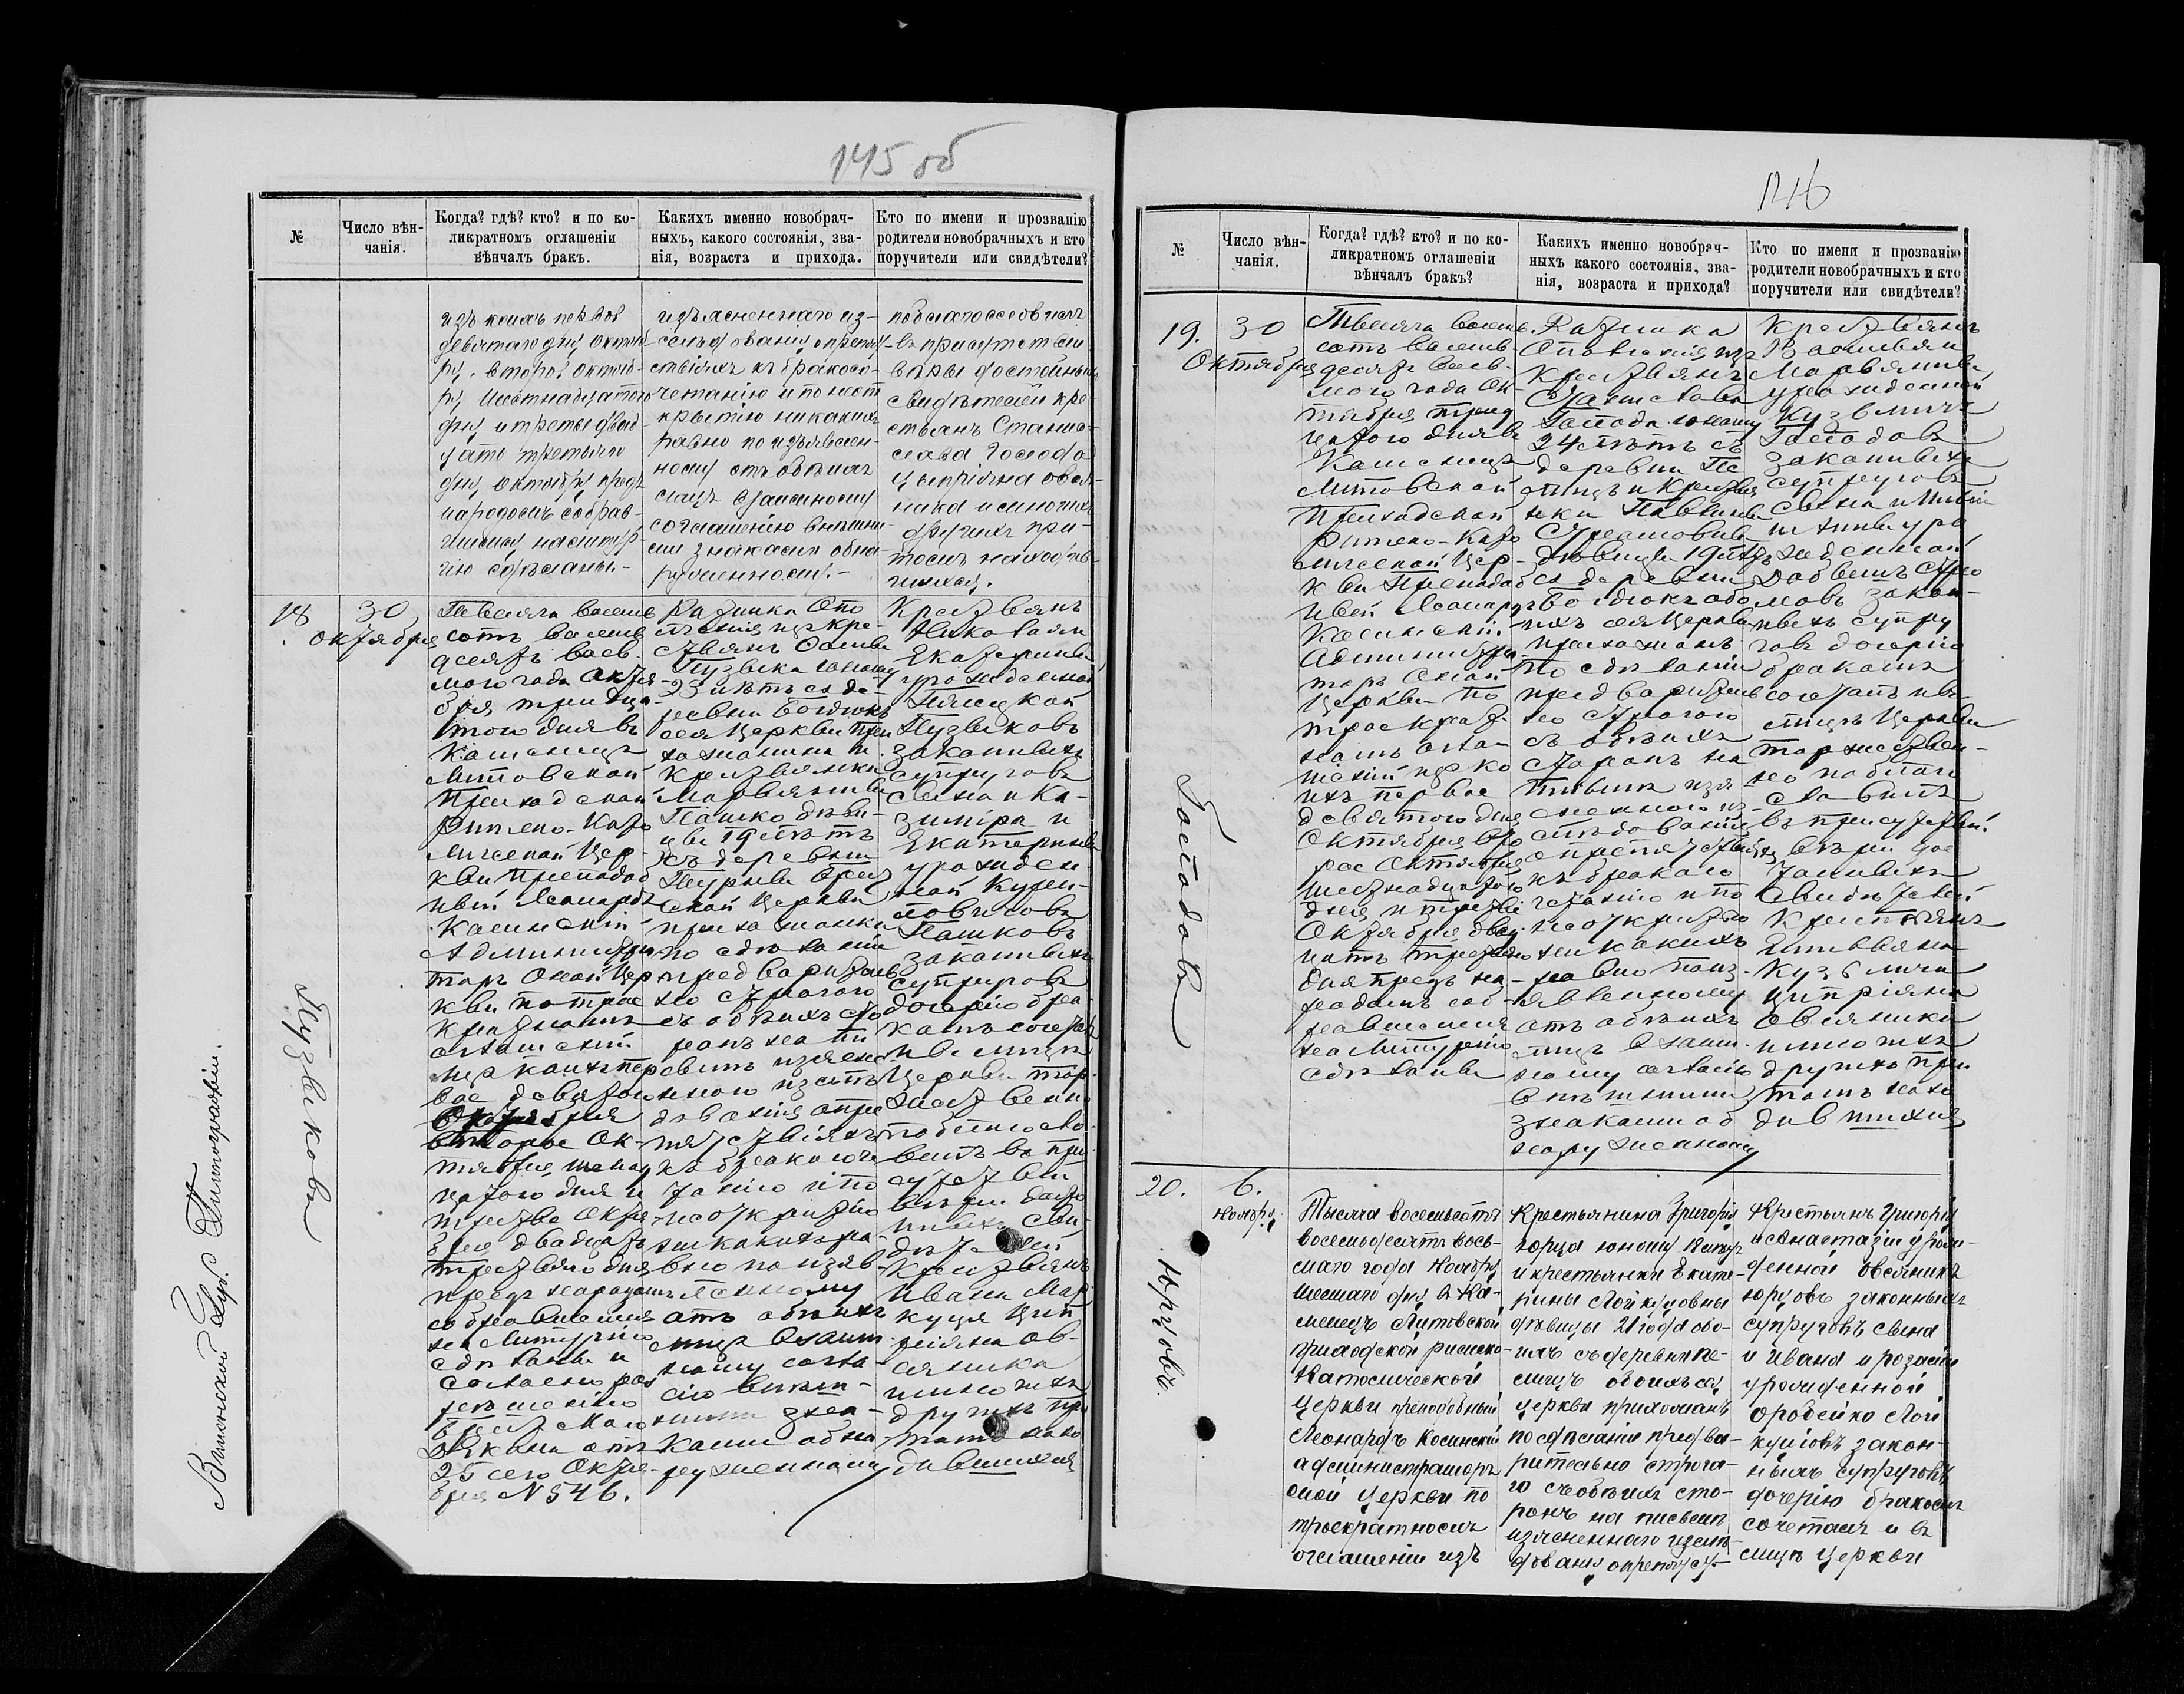 145 об
№
Число вѣн-
чанія.
Когда? гдѣ? кто? и по ко-
ликратномъ оглашеніи
вѣнчалъ бракъ.
Какихъ именно новобрач-
ныхъ, какого состоянія, зва-
нія, возраста и прихода.
Кто по имени и прозванію
родители новобрачныхъ и кто
поручители или свидѣтели?
изъ коихъ первое
девятаго дня октяб
ря, второе октяб-
ря шестнадцатого
дня и третье двад
цать третьяго
дня октября предъ
народомъ собрав-
шимся на литур-
гію сдѣланы.-
изъясненнаго из-
слѣдованія о препят
ствіяхъ къ бракосо-
четанію и по неот
крытію никакихъ
равно по изъявлен-
ному отъ обоихъ
лицъ взаимному
согласію внѣшни
ми знаками обна-
руженному.-
поблагословилъ
въ присутствіи
вѣры достойныхъ
свидѣтелей кре-
стьянъ Станис-
лава Господа
Ципріяна Овся-
ника и многихъ
другихъ при-
томъ находив-
шихся.
18
30
октября
Тысяча восемь
сотъ восемь
десятъ вось-
мого года октя-
бря тридца-
того дня въ
Каменецъ
Литовской
Приходской
Римско-Като
лической Цер-
кви Преподоб
ный Леонардъ
Касинскій
Администра-
торъ оной Цер-
кви по трое
кратномъ
оглашеніи
изъ коихъ пер
вое девятого
Октября
второе Ок-
тября шестнад
цатого дня и
третье Октя-
бря двадцать
третьяго дня
предъ народомъ
собравшимся
на Литургію
сдѣланы и
согласно раз
рѣшенію
Брест Кого
Декана отъ
25 сего Октя-
бря N 546.
Разника Опо
лченія изъ кре-
стьянъ Осипа
Пузыка юношу
23 лѣтъ съ де-
ревни Бордюкъ
сея Церкви При
хожанина и
Крестьянки
Марьянны
Пашко дѣви-
цы 19 лѣтъ
съ деревни
Турны Брест
ской Церкви
прихожанки
по сдѣланіи
предварительно
строгого
съ обѣихъ сто
ронъ на пи
сьмѣ изъясне
нного изслѣ
дованія о пре
пятствіяхъ
къ бракосоче
танію и по
неоткрытію
никакихъ ра-
вно по изъяв-
ленному
отъ обоихъ
лицъ взаим
ному согла-
сію внѣш-
ними зна-
ками обна-
руженному
Крестьянъ
Николая и
Екатерины
урожденной
Пяцукой
Пузыковъ
законныхъ
супруговъ
сына и Ка-
зиміра и
Екатерины
урожден-
ной Курьи-
ловичовъ
Пашковъ
законныхъ
супруговъ
дочерію бра-
комъ сочеталъ
и въ лицѣ
Церкви тор-
жественно
поблагосло
вилъ въ при
сутствіи
вѣры досто
йныхъ Сви-
дѣтелей
Крестьянъ
Ивана Мар-
куця Цип
ріяна Ов-
сяника
и многихъ
другихъ при
томъ нахо
дившихся
Пузыковы
Виленской Губ. Типографіи.
146
№
Число вѣн-
чанія.
Когда? гдѣ? кто? и по ко-
ликратномъ оглашеніи
вѣнчалъ бракъ?
Какихъ именно новобрач-
ныхъ какого состоянія, зва-
нія, возраста и прихода?
Кто по имени и прозванію
родители новобрачныхъ и кто
поручители или свидѣтели?
19.
30
Октября
Тысяча восемь
сотъ восемь-
десятъ вось-
мого года Ок-
тября трид
цатого дня въ
Каменецъ
Литовской
Приходской
Римско-Като
лической Цер-
кви Преподоб
ный Леонардъ
Касинскій
Администра-
торъ оной
Церкви по
троекрат-
номъ огла-
шеніи изъ ко
ихъ первое
девятого дня
Октября вто
рое Октября
шестнадцатого
дня и третье
Октября двад
цать третьяго
дня предъ на-
родомъ соб-
равшимся
на Литургію
сдѣланы
Разника
Ополченія изъ
Крестьянъ
Станислава
Господа юношу
24 лѣтъ съ
деревни Пе
лищъ и Крестья
нки Павлины
Стромовы
дѣвицы 19 лѣтъ
съ деревни
Бордюкъ обо
ихъ сея Церкви
прихожанъ
по сдѣланіи
предварительно
строгого
съ обѣихъ
сторонъ на
письмѣ изъя
сненного из-
слѣдованія
о препятствіяхъ
къ бракосо
четанію и по
неоткрытію
никакихъ
равно по изъ-
явленному
отъ обоихъ
лицъ взаим-
ному согласію
внѣшними
знаками об
наруженному
Крестьянъ
Василья и
Марьянны
урожденной
Кузьмичъ
Господовъ
законныхъ
супруговъ
сына и Матвѣя
и Анны уро
жденной
Довбешъ Стро
мовъ закон-
ныхъ супру
говъ дочерію
бракомъ
сочеталъ и въ
лицѣ Церкви
торжествен-
но поблаго
словилъ
въ присутствіи
вѣры дос
тойныхъ
Свидѣтелей
Крестьянъ
Кузьмича
Ципріяна
Овсяника
и многихъ
другихъ при
томъ нахо
дившихся
Господовы
20.
6.
Ноября
Тысяча восемьсотъ
восемьдесятъ вось-
маго года Ноября
шестаго дня въ Ка-
менецъ Литовской
приходской римско-
Католической
Церкви преподобный
Леонардъ Косинскій
администраторъ
оной Церкви по
троекратномъ
оглашеніи изъ
Крестьянина Григорія
Юрца юношу 18 лѣтъ
и крестьянки Екате-
рины Лойкуцовны
дѣвицы 21 года обо-
ихъ съ деревни Пе-
лищъ обоихъ сей
Церкви прихожанъ
по сдѣланіи предва-
рительно строга-
го съ обѣихъ сто-
ронъ на письмѣ
изъясненнаго изслѣ
дованія о препятст-
Крестьянъ Григорія
и Анастазіи урож-
денной Овсяникъ
Юрцовъ законныхъ
супруговъ сына
и Ивана и Розаліи
урожденной
Оробейко Лой
куцовъ закон-
ныхъ супруговъ
дочерію бракомъ
сочеталъ и въ
лицѣ Церкви
Юрцовы.